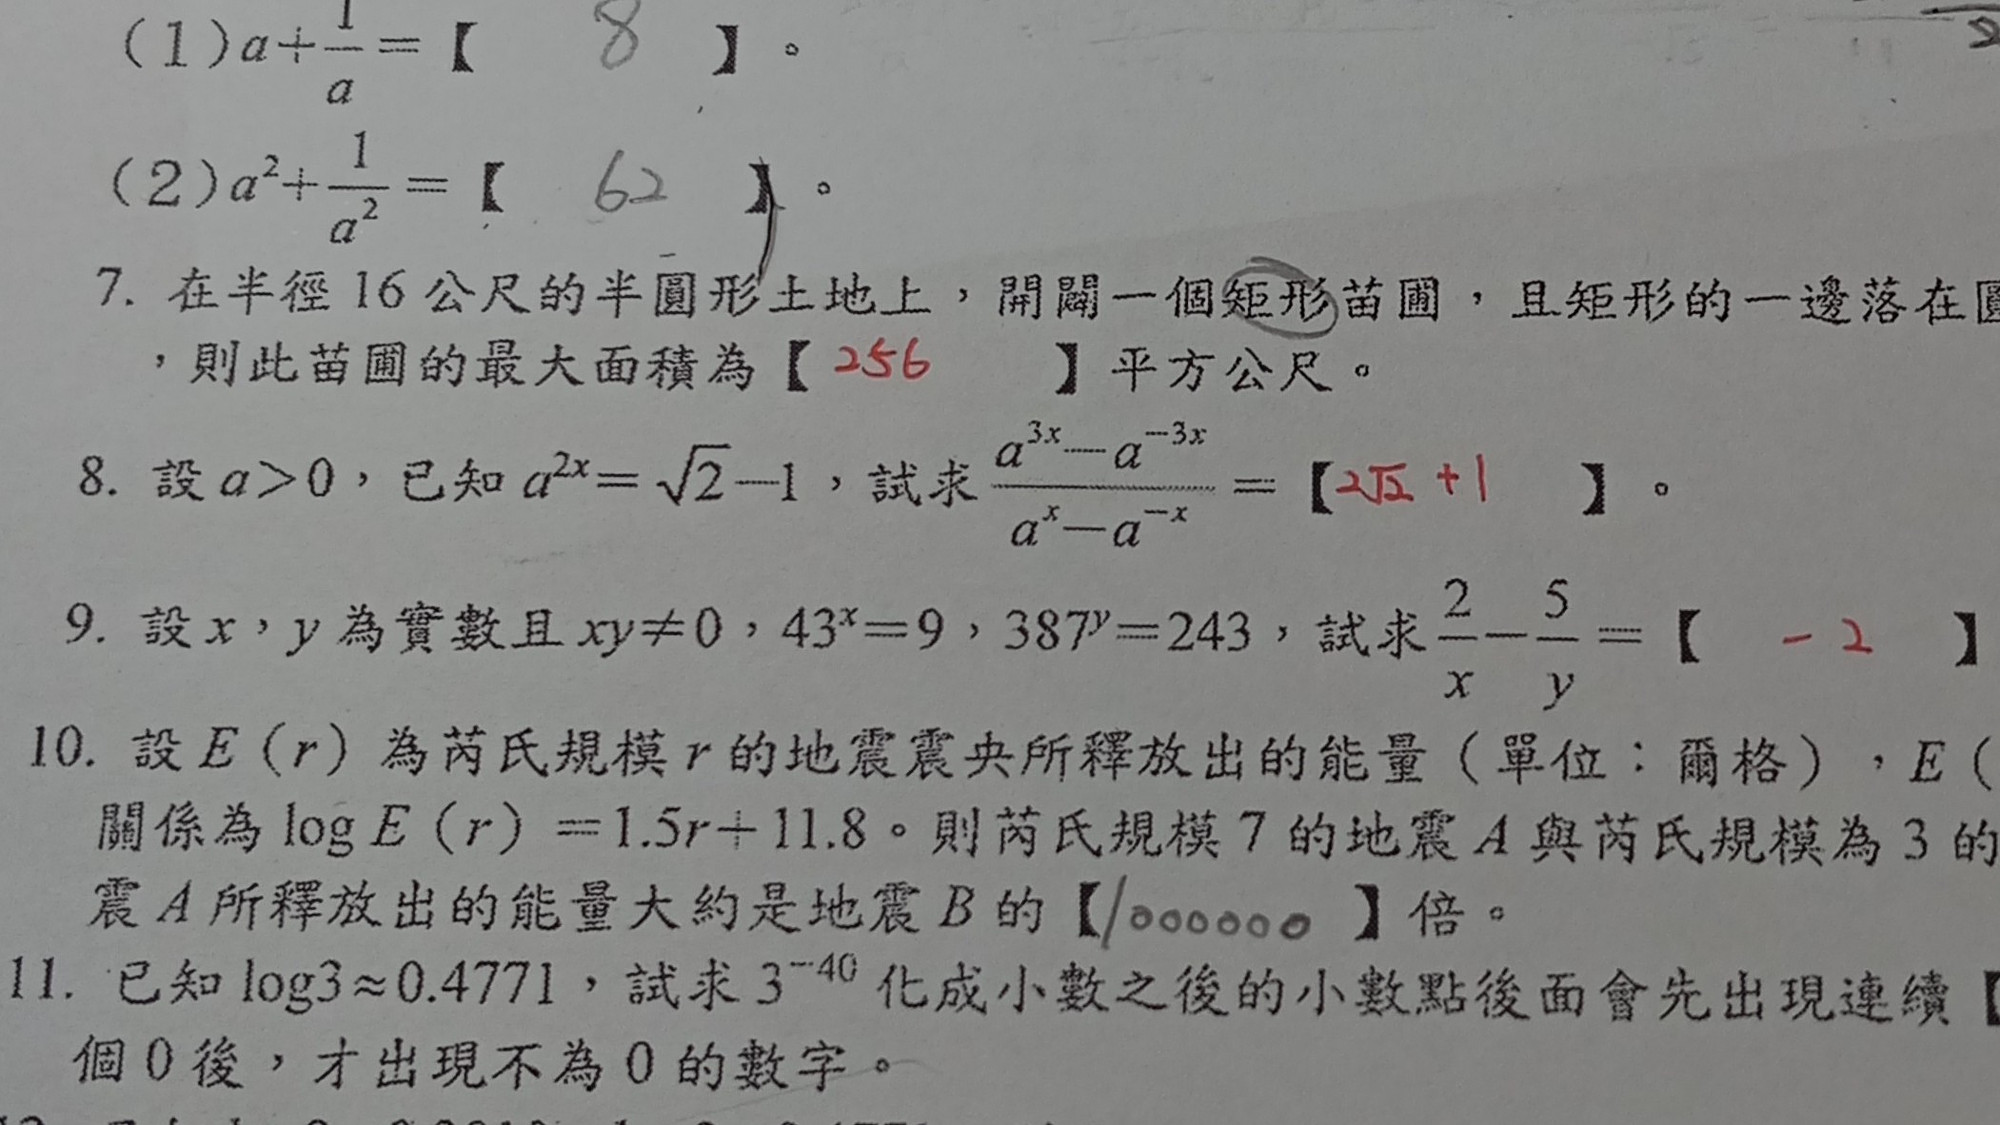 (1)a+1/a=【 8 】。
(2)a²+1/a²=【 62 】。
7. 在半徑 16 公尺的半圓形土地上，開闢一個矩形苗圃，且矩形的一邊落在圓
，則此苗圃的最大面積為【 256 】平方公尺。
8. 設 a>0，已知 a²ˣ=√2−1，試求 (a³ˣ−a⁻³ˣ)/(aˣ−a⁻ˣ)=【2√2+1 】。
9. 設 x，y 為實數且 xy≠0，43ˣ=9，387ʸ=243，試求 2/x−5/y=【 -2 】
10. 設 E（r）為芮氏規模 r 的地震震央所釋放出的能量（單位：爾格），E（
關係為 log E（r）=1.5r+11.8。則芮氏規模 7 的地震 A 與芮氏規模為 3 的
震 A 所釋放出的能量大約是地震 B 的【1000000 】倍。
11. 已知 log3≈0.4771，試求 3⁻⁴⁰ 化成小數之後的小數點後面會先出現連續【
個 0 後，才出現不為 0 的數字。